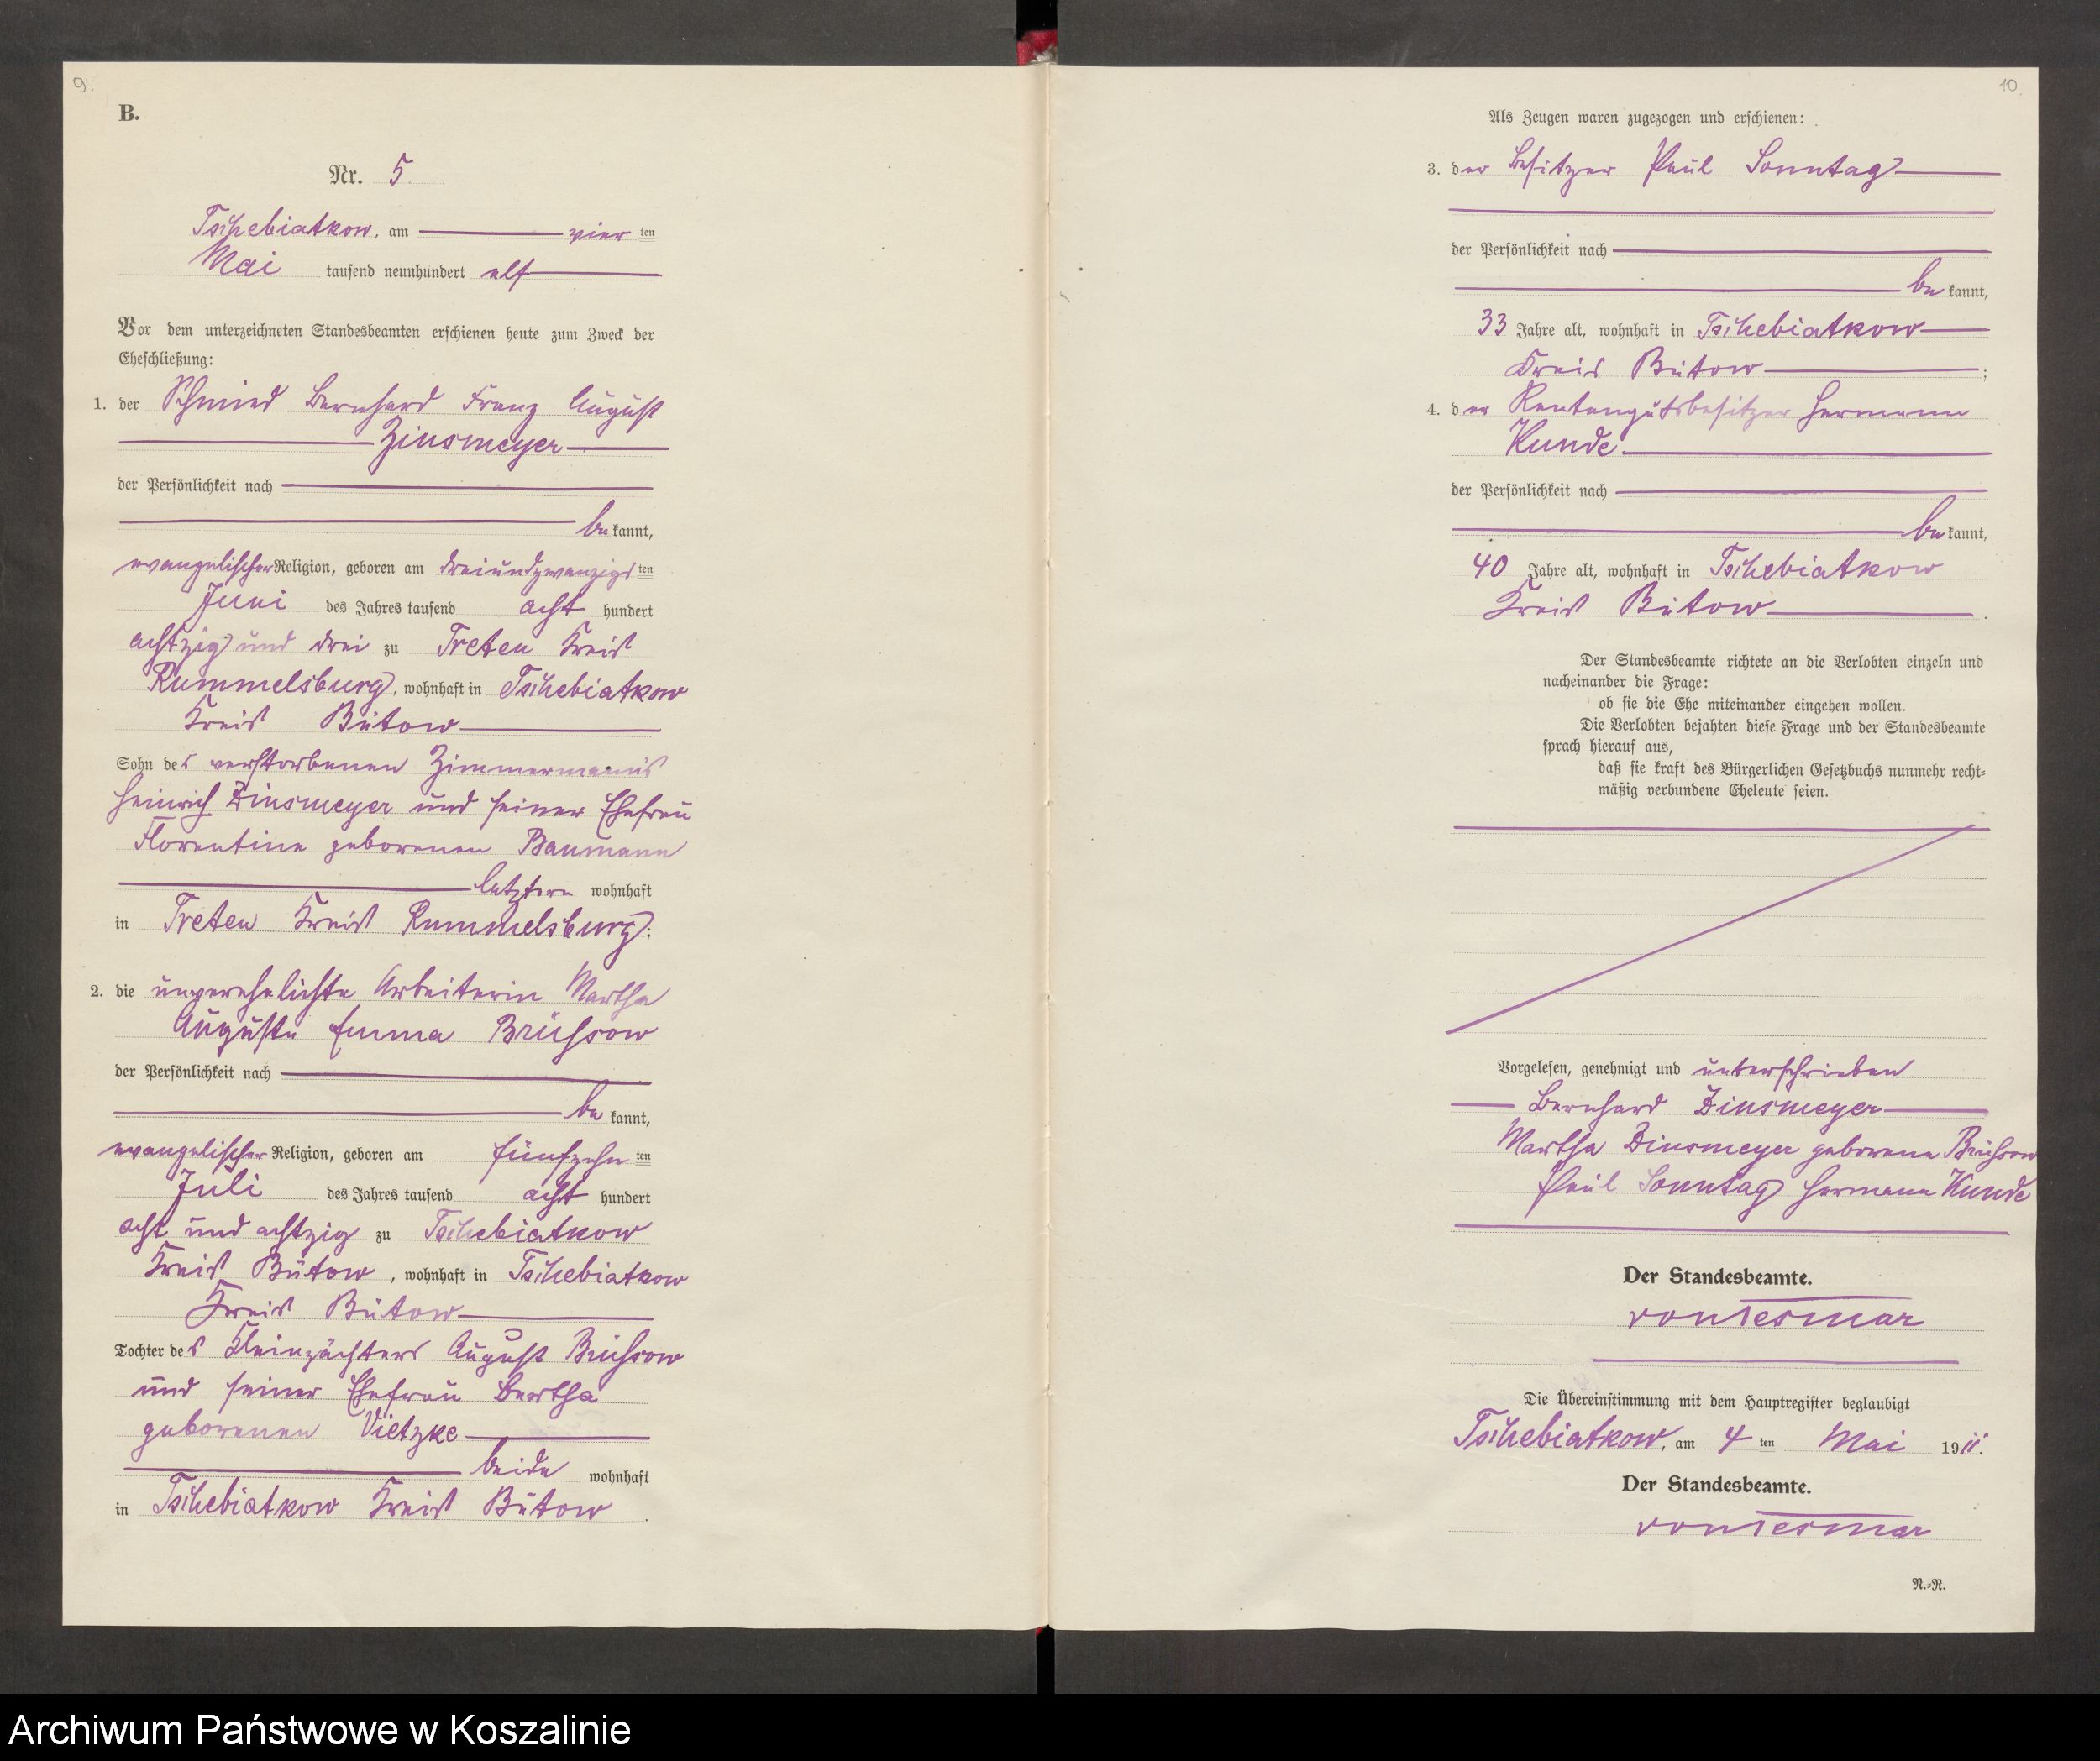 9.
B.
Nr. 5.
Tschebiatkow, am vier ten
Mai tausend neunhundert elf
Vor dem unterzeichneten Standesbeamten erschienen heute zum Zweck der
Eheschließung:
1. der Schmied Bernhard Franz August
Zinsmeyer
der Persönlichkeit nach
be kannt,
evangelischer Religion, geboren am dreiundzwanzigs ten
Juni des Jahres tausend acht hundert
achtzig und drei zu Treten Kreis
Rummelsburg, wohnhaft in Tschebiatkow
Kreis Bütow
Sohn des verstorbenen Zimmermanns
Heinrich Zinsmeyer und seiner Ehefrau
Florentine geborenen Baumann
letztere wohnhaft
in Treten Kreis Rummelsburg;
2. die unverehelichte Arbeiterin Martha
Auguste Emma Brüssow
der Persönlichkeit nach
be kannt,
evangelischer Religion, geboren am fünfzehn ten
Juli des Jahres tausend acht hundert
acht und achtzig zu Tschebiatkow
Kreis Bütow, wohnhaft in Tschebiatkow
Kreis Bütow
Tochter des Kleinpächters August Brüssow
und seiner Ehefrau Bertha
geborenen Vietzke
beide wohnhaft
in Tschebiatkow Kreis Bütow.
10.
Als Zeugen waren zugezogen und erschienen:
3. der Besitzer Paul Sonntag
der Persönlichkeit nach
be kannt,
33 Jahre alt, wohnhaft in Tschebiatkow
Kreis Bütow;
4. der Rentengutsbesitzer Hermann
Kunde
der Persönlichkeit nach
be kannt,
40 Jahre alt, wohnhaft in Tschebiatkow
Kreis Bütow.
Der Standesbeamte richtete an die Verlobten einzeln und
nacheinander die Frage:
ob sie die Ehe miteinander eingehen wollen.
Die Verlobten bejahten diese Frage und der Standesbeamte
sprach hierauf aus,
daß sie kraft des Bürgerlichen Gesetzbuchs nunmehr recht-
mäßig verbundene Eheleute seien.
Vorgelesen, genehmigt und unterschrieben
Bernhard Zinsmeyer
Martha Zinsmeyer geborene Brüssow
Paul Sonntag Hermann Kunde
Der Standesbeamte.
von Tesmar
Die Übereinstimmung mit dem Hauptregister beglaubigt
Tschebiatkow, am 4 ten Mai 1911.
Der Standesbeamte.
von Tesmar
N.-N.
Archiwum Państwowe w Koszalinie